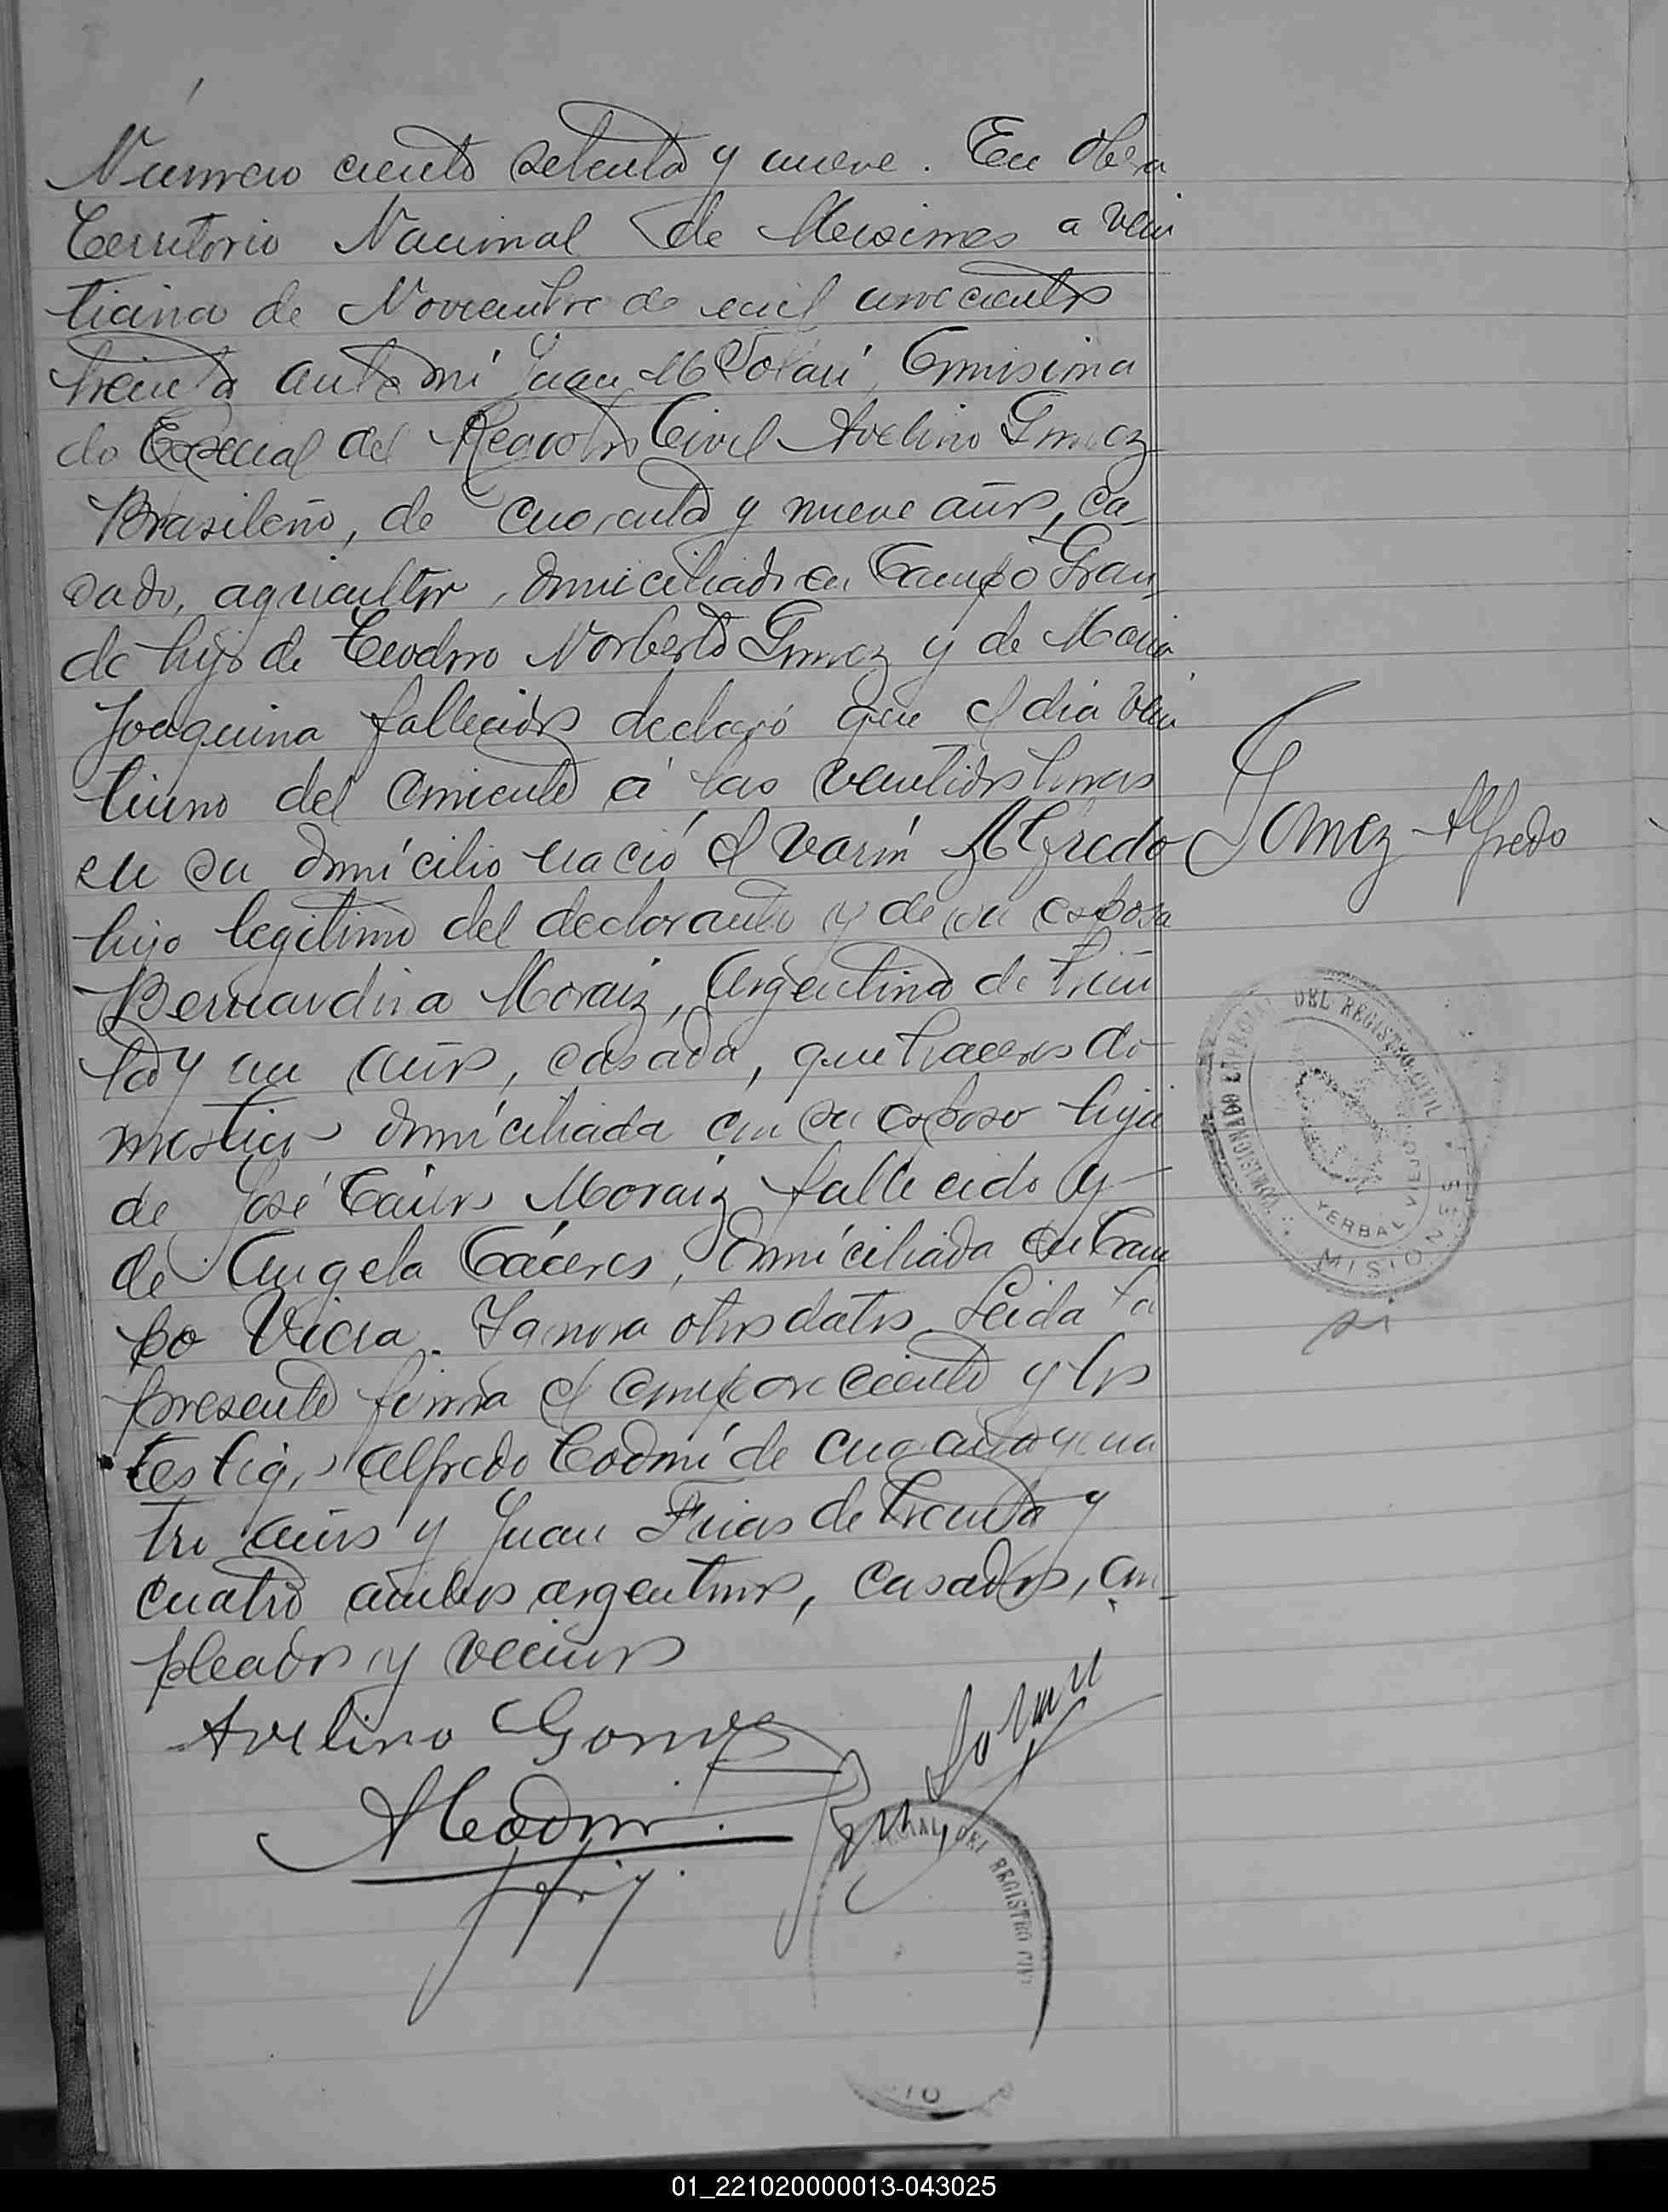 Número ciento setenta y nueve. En Oberá
Territorio Nacional de Misiones a vein
ticinco de Noviembre de mil novecientos
treinta ante mí Juan M Solari, Comisiona
do Especial del Registro Civil Avelino Gomez
Brasileño, de cuarenta y nueve años, ca-
sado, agricultor, domiciliado en Campo Gran-
de hijo de Teodoro Norberto Gomez y de Maria
Joaquina fallecidos declaró que el dia vein
tiuno del corriente á las veintidos horas
en su domicilio nació el varón Alfredo
hijo legítimo del declarante y de su esposa
Bernardina Moraiz, Argentina de trein
ta y un años, casada, quehaceres do-
mesticos domiciliada con su esposo hija
de José Moraiz fallecido y
de Angela Cáceres, domiciliada en Cam
po Viera. Ignora otros datos. Leida la
presente firma el compareciente y los
testigos Alfredo Codoni de cuarenta y cua
tro años y Juan Frias de treinta y
cuatro ambos argentinos, casados, em-
pleados y vecinos
Gomez Alfredo
COMISIONADO ESPECIAL DEL REGISTRO CIVIL
YERBAL VIEJO
MISIONES
Avelino Gomez
Solari
ACodoni
CIAL DEL REGISTRO CIVI
01_221020000013-043025